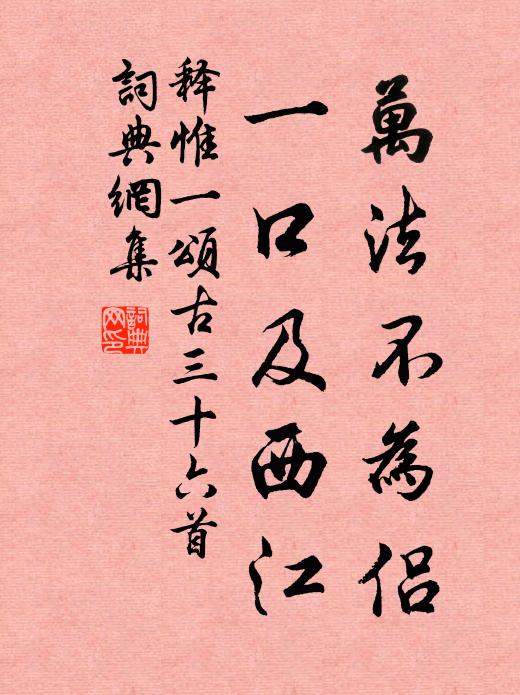 萬法不為侶
一口及西江
释惟一頌古三十六首
詞典網集
詞典
网印